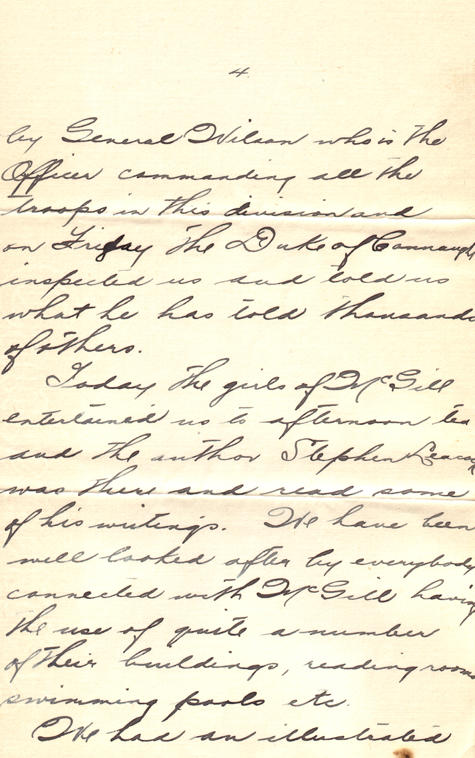 4
by General Wilson who is the
Officer commanding all the
troops in this division and
on Friday the Duke of Connaught
inspected us and told us
what he has told thousands
of others.
Today the girls of McGill
entertained us to afternoon tea
and the author Stephen Leacock
was there and read some
of his writings. We have been
well looked after by everybody
connected with McGill having
the use of quite a number
of their buildings, reading rooms
swimming pools etc.
We had an illustrated